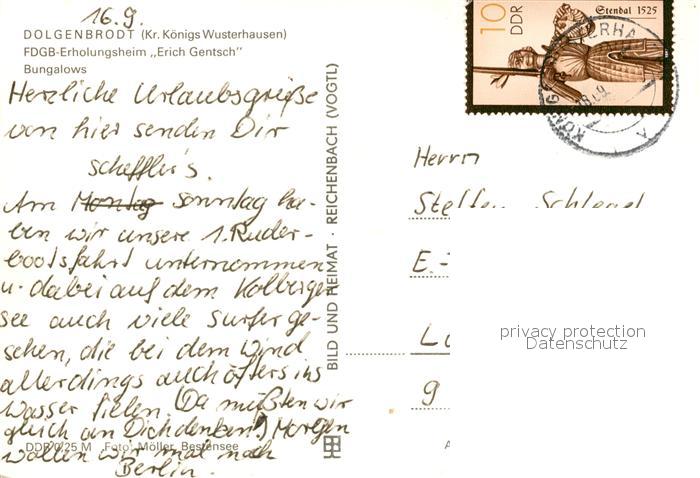 16.9.
DOLGENBRODT (Kr. Königs Wusterhausen)
FDGB-Erholungsheim „Erich Gentsch"
Bungalows
Herzliche Urlaubsgrüße
von hier senden Dir
Scheffler's.
Am Montag Sonntag ha-
ben wir unsere 1. Ruder-
bootsfahrt unternommen
u. dabei auf dem Kolberger
See auch viele Surfer ge-
sehen, die bei dem Wind
allerdings auch öfters ins
Wasser fielen. (Da müßten wir
gleich an Dich denken!) Morgen
wollen wir mal nach
Berlin.
DDR 0,25 M Foto: Möller, Bestensee
BILD UND HEIMAT · REICHENBACH (VOGTL)
10
DDR
Stendal 1525
Herrn
Steffen Schlegel
E.-
L
9
privacy protection
Datenschutz
A